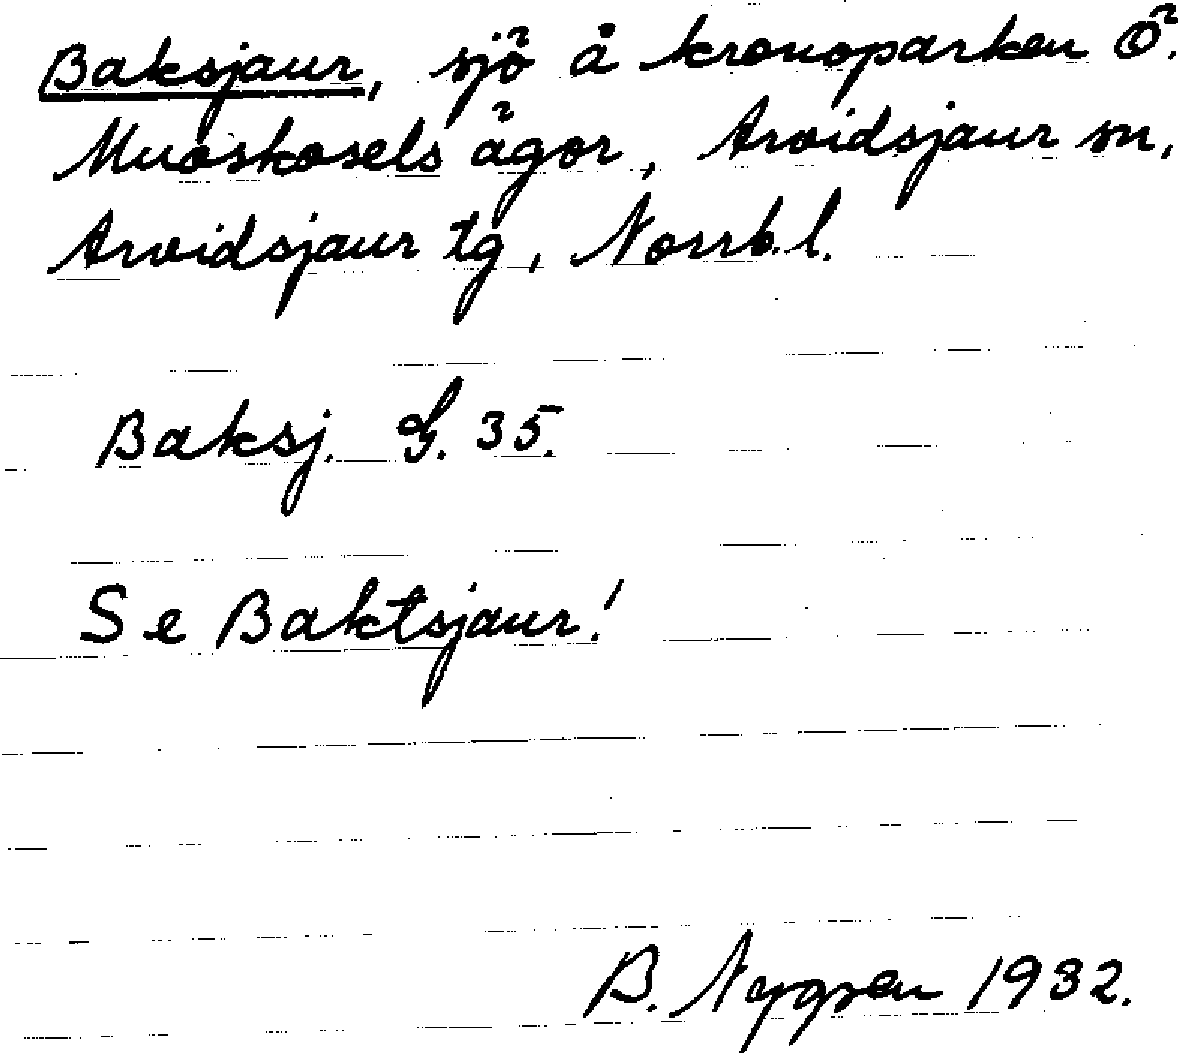 Baksjaur, sjö å kronoparken Ö.
Muoskosels ägor, Arvidsjaur sn,
Arvidsjaur tg, Norrb. l.
Baksj. G. 35.
Se Baktsjaur!
B. Nygren 1932.